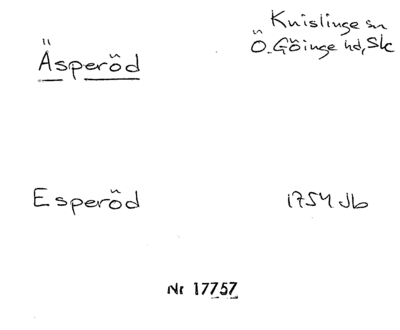 Knislinge sn
Äsperöd
Ö. Göinge hd, Sk
Esperöd
1754 Jb
Nr 17757